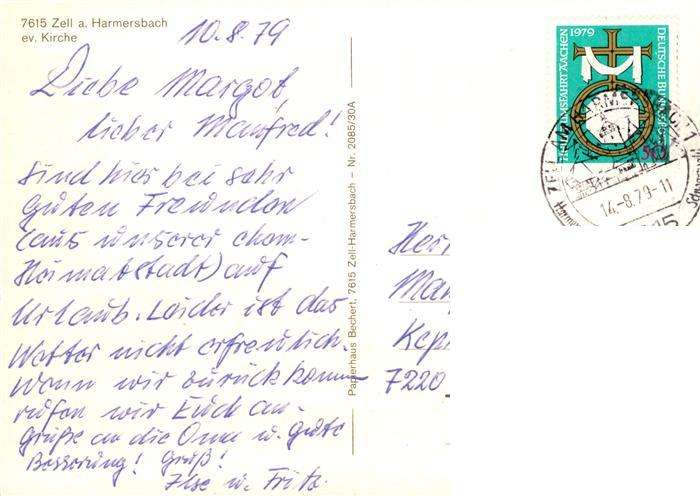 7615 Zell a. Harmersbach
ev. Kirche
10.8.79
Liebe Margot,
lieber Manfred!
Sind hier bei sehr
guten Freunden
(aus unserer ehem-
Heimatstadt) auf
Urlaub. Leider ist das
Wetter nicht erfreulich.
Wenn wir zurückkom-
rufen wir Euch an-
Grüße an die Oma u. gute
Besserung! Gruß!
Ilse u. Fritz.
Papierhaus Bechert, 7615 Zell-Harmersbach – Nr. 2085/30A
HEILIGTUMSFAHRT AACHEN 1979
DEUTSCHE BUNDESPOST
50
14.-8.79-11
Herr
Man
Kep
7220